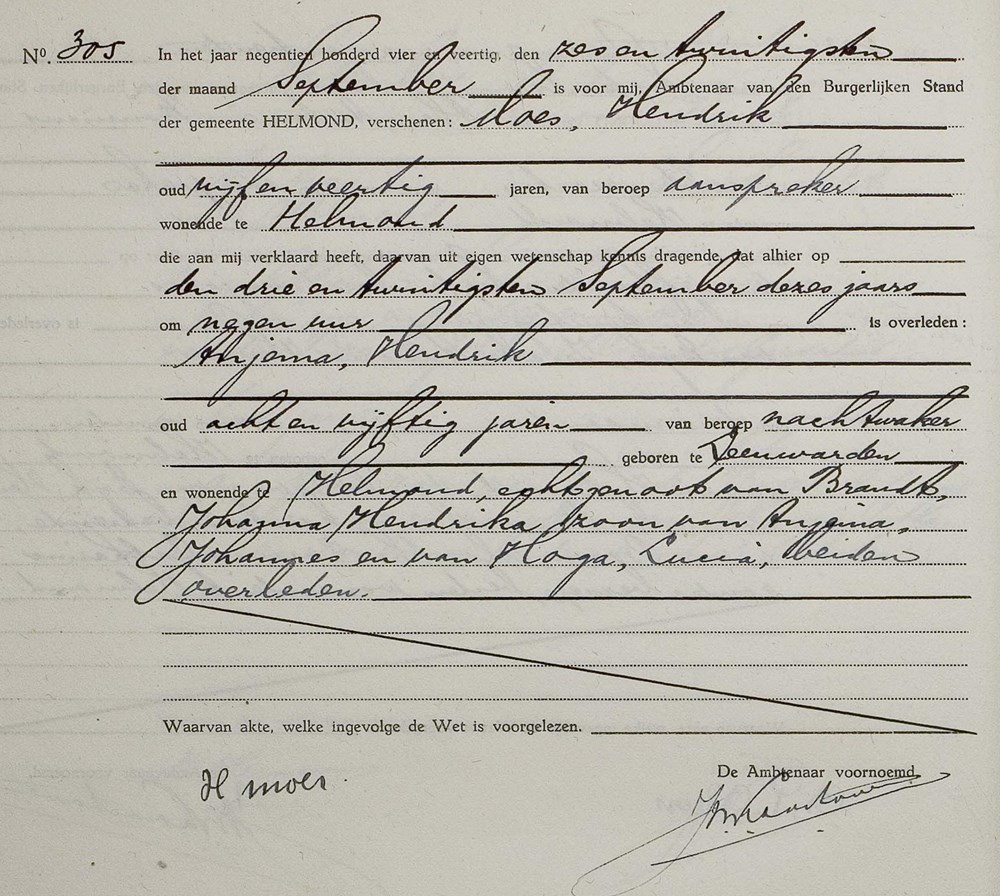 Nº. 305 In het jaar negentien honderd vier en veertig, den zes en twintigsten
der maand September is voor mij, Ambtenaar van den Burgerlijken Stand
der gemeente HELMOND, verschenen: Moes, Hendrik
oud vijf en veertig jaren, van beroep aanspreker
wonende te Helmond
die aan mij verklaard heeft, daarvan uit eigen wetenschap kennis dragende, dat alhier op
den drie en twintigsten September dezes jaars
om negen uur is overleden:
Anjema, Hendrik
oud acht en vijftig jaren van beroep nachtwaker
geboren te Leeuwarden
en wonende te Helmond, echtgenoot van Brandt,
Johanna Hendrika, zoon van Anjema,
Johannes en van Hoga, Lucia, beiden
overleden.
Waarvan akte, welke ingevolge de Wet is voorgelezen.
De Ambtenaar voornoemd,
H moes.